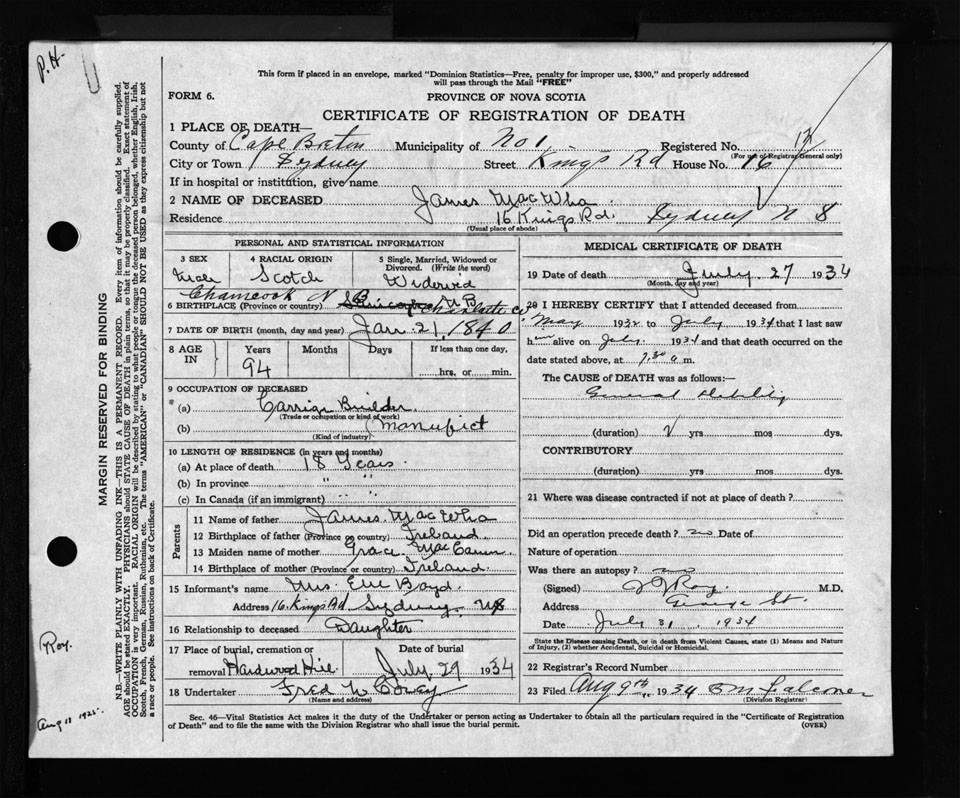 P.H.
This form if placed in an envelope, marked "Dominion Statistics—Free, penalty for improper use, $300," and properly addressed
will pass through the Mail "FREE"
FORM 6.
PROVINCE OF NOVA SCOTIA
CERTIFICATE OF REGISTRATION OF DEATH
1 PLACE OF DEATH—
County of Cape Breton Municipality of No 1 Registered No.
(For use of Registrar General only)
City or Town Sydney Street Kings Rd House No. 16
If in hospital or institution, give name
2 NAME OF DECEASED James MacWha
Residence 16 Kings Rd. Sydney N S
(Usual place of abode)
PERSONAL AND STATISTICAL INFORMATION
3 SEX 4 RACIAL ORIGIN 5 Single, Married, Widowed or Divorced. (Write the word)
Male Scotch Widowed
Chamcook N B
6 BIRTHPLACE (Province or country) N B Charlotte Co
7 DATE OF BIRTH (month, day and year) Jan. 21, 1840
8 AGE IN Years Months Days If less than one day,
94 hrs. or min.
9 OCCUPATION OF DECEASED
(a) Carriage Builder
(Trade or occupation or kind of work)
(b) Manufict
(Kind of industry)
10 LENGTH OF RESIDENCE (in years and months)
(a) At place of death 18 Years.
(b) In province " "
(c) In Canada (if an immigrant) " "
Parents
11 Name of father James MacWha
12 Birthplace of father (Province or country) Ireland
13 Maiden name of mother Grace
14 Birthplace of mother (Province or country) Ireland.
15 Informant's name Mrs. Boyd
Address 16 Kings Rd Sydney NS
16 Relationship to deceased Daughter
17 Place of burial, cremation or removal Hardwood Hill Date of burial July 29 1934
18 Undertaker Fred W
(Name and address)
MEDICAL CERTIFICATE OF DEATH
19 Date of death July 27 1934
(Month, day and year)
20 I HEREBY CERTIFY that I attended deceased from
May 1932 to July 1934 that I last saw
him alive on July 1934 and that death occurred on the
date stated above, at 7.30 a m.
The CAUSE OF DEATH was as follows:—
General Debility
(duration) yrs mos dys.
CONTRIBUTORY
(duration) yrs mos dys.
21 Where was disease contracted if not at place of death?
Did an operation precede death? no Date of
Nature of operation
Was there an autopsy? no
(Signed) Roy M.D.
Address George St.
Date July 31 1934
State the Disease causing Death, or in death from Violent Causes, state (1) Means and Nature
of Injury, (2) whether Accidental, Suicidal or Homicidal.
22 Registrar's Record Number
23 Filed Aug 9th 1934 Falconer
(Division Registrar)
Sec. 46—Vital Statistics Act makes it the duty of the Undertaker or person acting as Undertaker to obtain all the particulars required in the "Certificate of Registration
of Death" and to file the same with the Division Registrar who shall issue the burial permit. (OVER)
MARGIN RESERVED FOR BINDING
N.B.—WRITE PLAINLY WITH UNFADING INK—THIS IS A PERMANENT RECORD. Every item of information should be carefully supplied.
AGE should be stated EXACTLY. PHYSICIANS should STATE CAUSE OF DEATH in plain terms, so that it may be properly classified. Exact statement of
OCCUPATION is very important. RACIAL ORIGIN will be described by stating to what people or tongue the deceased person belonged, whether English, Irish,
Scotch, French, German, Russian, Ruthenian, etc. The terms "AMERICAN" or "CANADIAN" SHOULD NOT BE USED as they express citizenship but not
a race or people. See instructions on back of Certificate.
Roy.